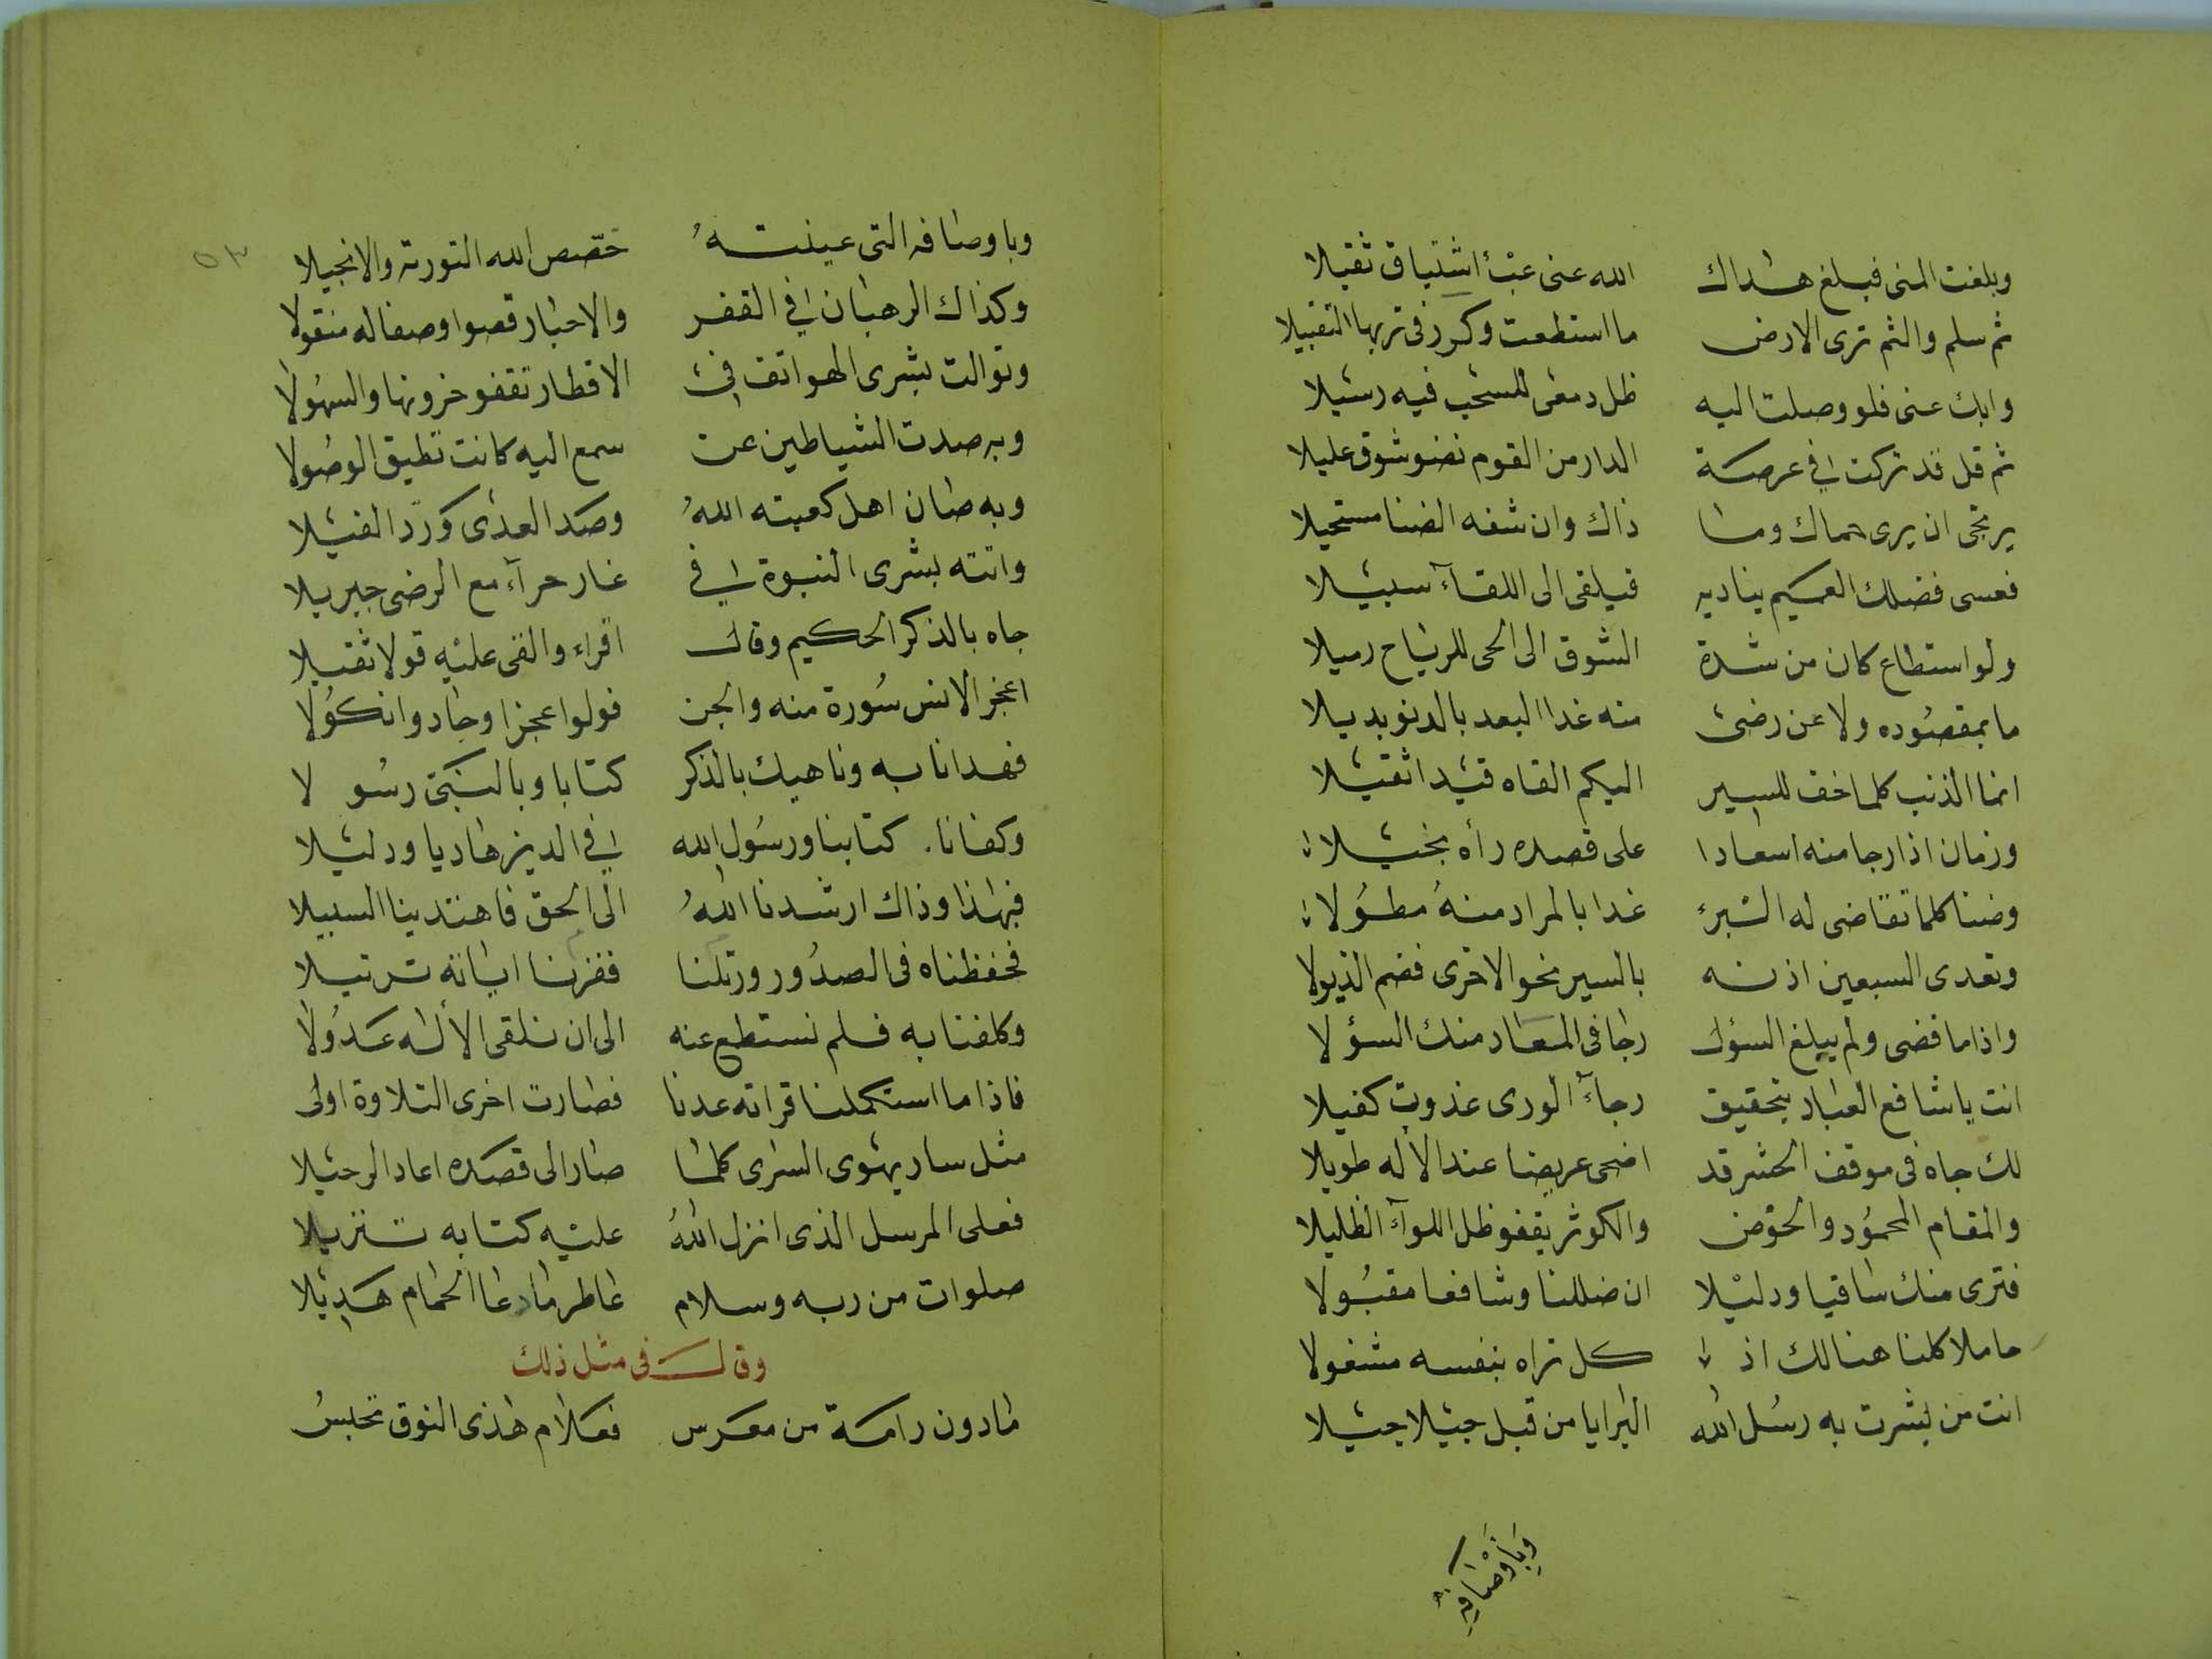 وبلغت المنى فبلغ هداك الله عنى عبٔ اشتياق ثقيلا
ثم سلم والثم ثرى الارض ما استطعت وكرر فى تربها التقبيلا
وابك عنى فلو وصلت اليه ظل دمعى للسحب فيه رسيلا
ثم قل قد تركت في عرصة الدار من القوم نضو شوق عليلا
يرتجى ان يرى حماك وما ذاك وان شفه الضنا مستحيلا
فعسى فضلك العميم يناديه فيلقى الى اللقآء سبيلا
ولو استطاع كان من شدة الشوق الى الحى للرياح رميلا
ما بمقصوده ولا عن رضى منه غدا البعد بالدنو بديلا
انما الذنب كلما خف للسير اليكم القاه قيدا ثقيلا
وزمان اذا رجا منه اسعادا على قصده رأه بخيلا
وضنا كلما تقاضى له البرء غدا بالمراد منهُ مطُولا
وتعدى السبعين اذنه بالسير نحو الاخرى فضم الذيولا
واذا ما قضى ولم يبلغ السؤل رجا فى المعاد منك السؤلا
انت يا شافع العباد بتحقيق رجآء الورى غدوت كفيلا
لك جاه فى موقف الحشر قد اضحى عريضا عند الأله طويلا
والمقام المحمُود والحوض والكوثر يقفو ظل اللوآء الظليلا
فترى منك ساقيا ودليلا ان ضللنا وشافعا مقبُولا
حاملا كلنا هنالك اذ كل تراه بنفسه مشغولا
انت من بشرت به رسُل الله البرايا من قبل جيلا جيلا
وَبأوْصَافِهِ
٥٣
وباوصافه التى عينتهُ خصّص الله التورته والانجيلا
وكذاك الرهبان في القفر والاحبار قصوا وصفا له منقولا
وتوالت بشرى الهواتف في الاقطار تقفو حزونها والسهُولا
وبه صدت الشياطين عن سمع اليه كانت تطيق الوصُولا
وبه صان اهل كعبته اللهُ وصد العدى وردّ الفيلا
واتته بشرى النبوة في غار حرآء مع الرضى جبريلا
جاه بالذكر الحكيم وقال اقراء والقى عليه قولا ثقيلا
اعجز الانس سُورة منه والجن فولوا عجزا وحادوا نكُولا
فهدانا به وناهيك بالذكر كتابا وبالنبىّ رسُولا
وكفانا كتابنا ورسُول الله في الدين هاديا ودليلا
فبهذا وذاك ارشدنا اللهُ الى الحق فاهتدينا السبيلا
فحفظناه فى الصدُور ورتلنا فقرنا اياته ترتيلا
وكلفنا به فلم نستطع عنه الى ان نلقى الأله عدُولا
فاذا ما استكملنا قراته عدنا فصارت اخرى التلاوة اولى
مثل سار يهوى السرى كلما صار الى قصده اعاد الرحيلا
فعلى المرسل الذى انزل اللهُ عليه كتابه تنزيلا
صلوات من ربه وسلام عاطر ما دعا الحمام هديلا
وقال فى مثل ذلك
ما دون رامة من معرس فعلام هذى النوق تحبسُ